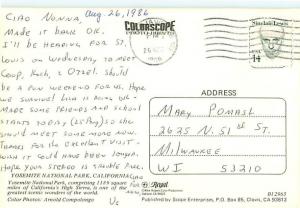 Aug. 26, 1986
CIAO NONNA,
MADE IT BACK OK.
I'LL BE HEADING FOR ST.
LOUIS ON WEDNESDAY, TO MEET
SHOULD
BE A FUN WEEKEND FOR US. HOPE
WE
MADE SOME FRIENDS AND SCHOOL
STARTS TODAY SO
SHOULD MEET SOME MORE NOW.
THANKS FOR THE EXCELLENT VISIT -
WISH IT COULD HAVE BEEN LONGER.
HOPE YOUR STEREO IS
CIAO FOR
YOSEMITE NATIONAL PARK, CALIFORNIA
Yosemite National Park, comprising 1189 square
miles of California's High Sierra, is one of the
greatest scenic wonders of the world.
Color Photo: Arnold Compolongo
COLORSCOPE
Sinclair Lewis
USA
14
ADDRESS
MARY POMASL
2625 N. 51st ST.
MILWAUKEE
WI 53210
Published by Scope Enterprises, P.O. Box 85, Clovis, CA 93613